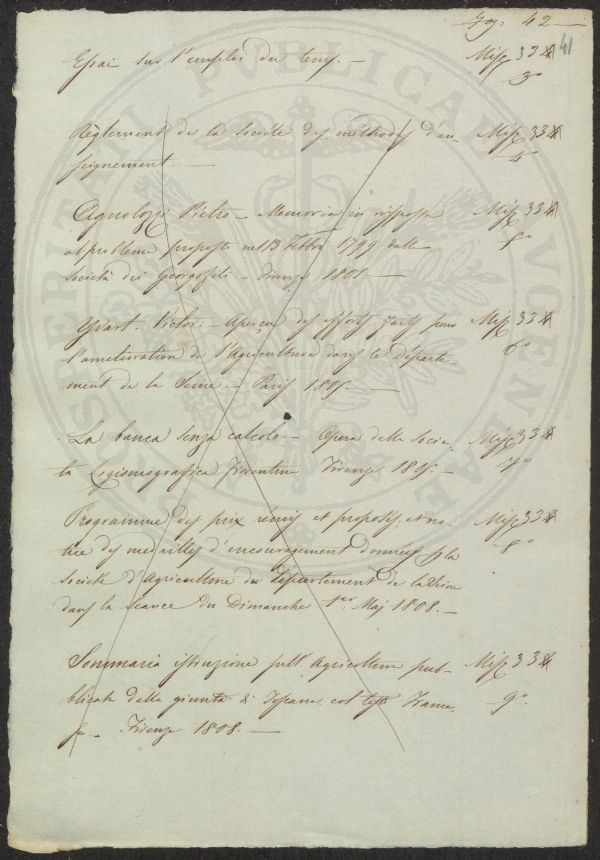 42
41
Essai sur l'emploi du tems. — Misc 33
3°
Règlement de la Société des méthodes d'en- Misc 33
seignement. — 4°
Agnolozzi Pietro — Memoria in risposta Misc 33
al problema proposto nel 13 Febbr 1799 dalla 5°
Società dei Georgofili. — Firenze 1801 —
Yvart. Victor. — Aperçu des efforts faits pour Misc 33
l'amelioration de l'Agriculture dans le départe- 6°
ment de la Seine — Paris —
La banca senza calcolo. — Opera della Socie- Misc 33
tà Logismografica fiorentina Firenze — 7°
Programme des prix remis et proposés, et no- Misc 33
tice des medailles d'encouragement données p la 8°
société d'Agriculture du Département de la Seine
dans la séance du Dimanche 1er Maj 1808. —
Sommaria istruzione sull'Agricoltura pub- Misc 33
blicata dalla giunta di Toscana col testo France- 9°
se. — Firenze 1808. —
PUBLICAE